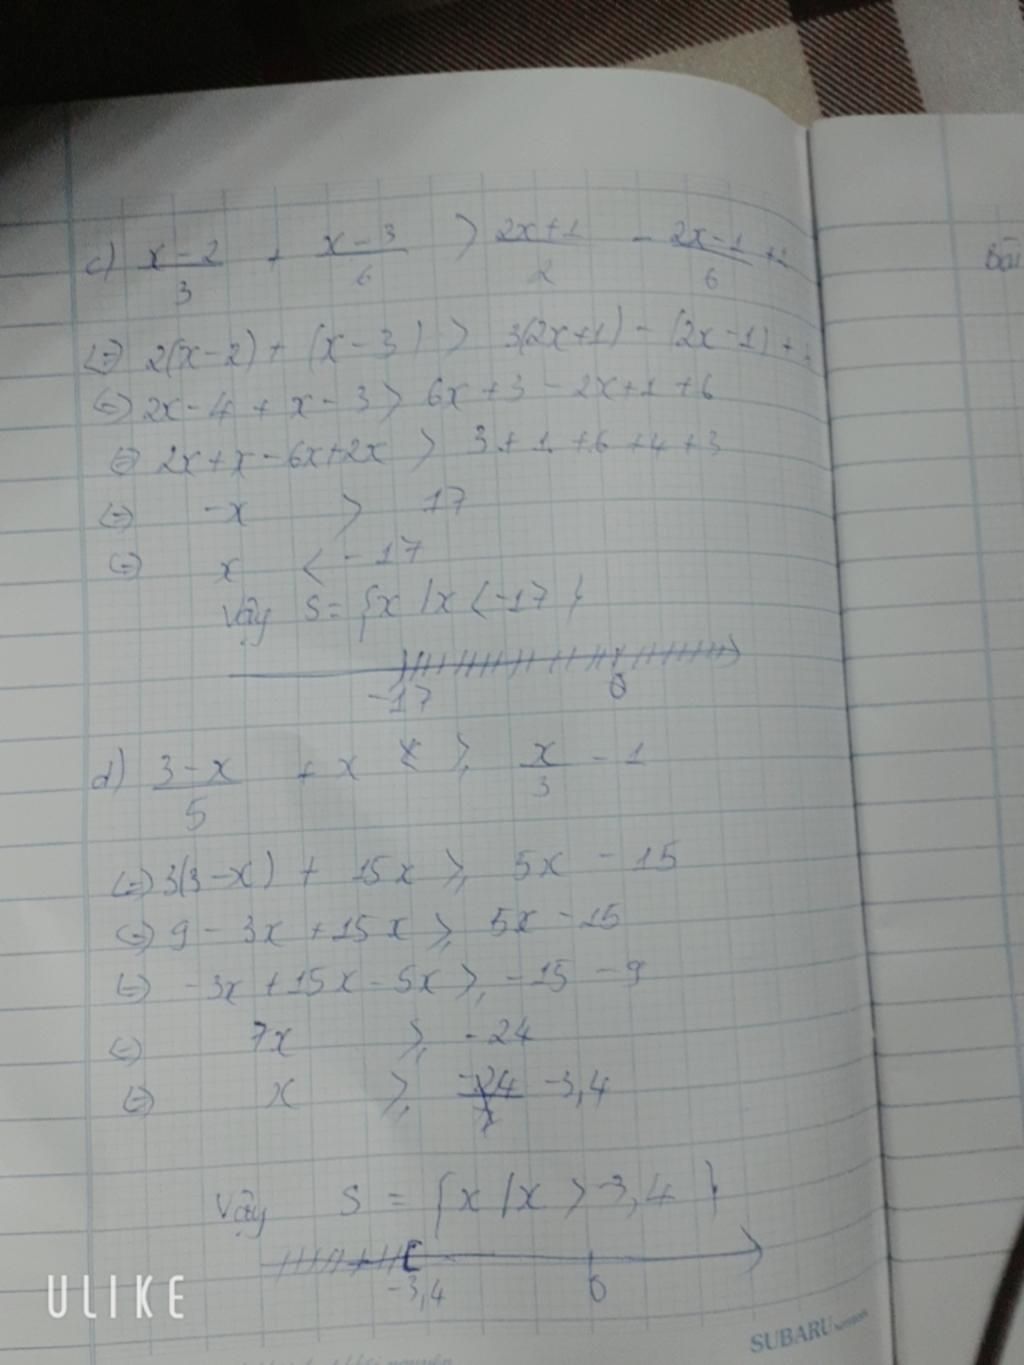 c) \frac{x-2}{3} + \frac{x-3}{6} > \frac{2x+1}{2} - \frac{2x-1}{6} +
Bài
(=) 2(x-2) + (x-3) > 3(2x+1) - (2x-1) +
(=) 2x - 4 + x - 3 > 6x + 3 - 2x + 1 + 6
(=) 2x + x - 6x + 2x > 3 + 1 + 6 + 4 + 3
(=) -x > 17
(=) x < -17
Vậy S = {x / x < -17}
-17 0
d) \frac{3-x}{5} + x ≥ \frac{x}{3} - 1
(=) 3(3-x) + 15x ≥ 5x - 15
(=) 9 - 3x + 15x ≥ 5x - 15
(=) -3x + 15x - 5x ≥ -15 - 9
(=) 7x ≥ -24
(=) x ≥ -3,4
Vậy S = {x / x > -3,4}
-3,4 0
ULIKE
SUBARU